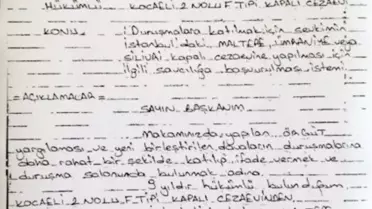 HÜKÜMLÜ KOCAELİ 2 NOLU F TİPİ KAPALI CEZAEVİ
KONU : Duruşmalara katılmak için sevkimin
İstanbul'daki MALTEPE, ÜMRANİYE veya
SİLİVRİ kapalı cezaevine yapılması için
ilgili savcılığa başvurulması istemi
=AÇIKLAMALAR=
SAYIN BAŞKANIM
Makamınızda yapılan ÖRGÜT
yargılaması ve yeni birleştirilen davaların duruşmalarına
daha rahat bir şekilde katılıp ifade vermek ve
duruşma salonunda bulunmak adına.
9 yıldır hükümlü bulunduğum
KOCAELİ 2 NOLU F TİPİ KAPALI CEZAEVİNDEN